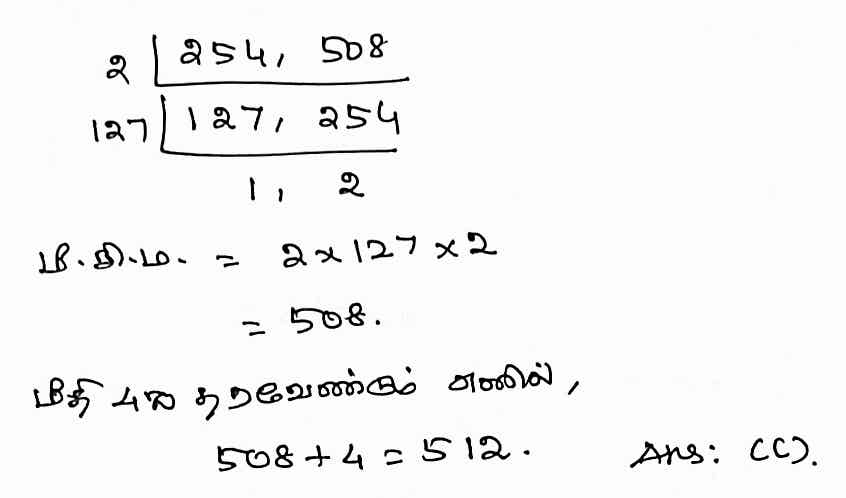 2 | 254, 508
127 | 127, 254
1, 2
மீ.சி.ம. = 2 x 127 x 2
= 508.
மீதி 4ஐ தரவேண்டும் எனில்,
508 + 4 = 512. Ans: (C).